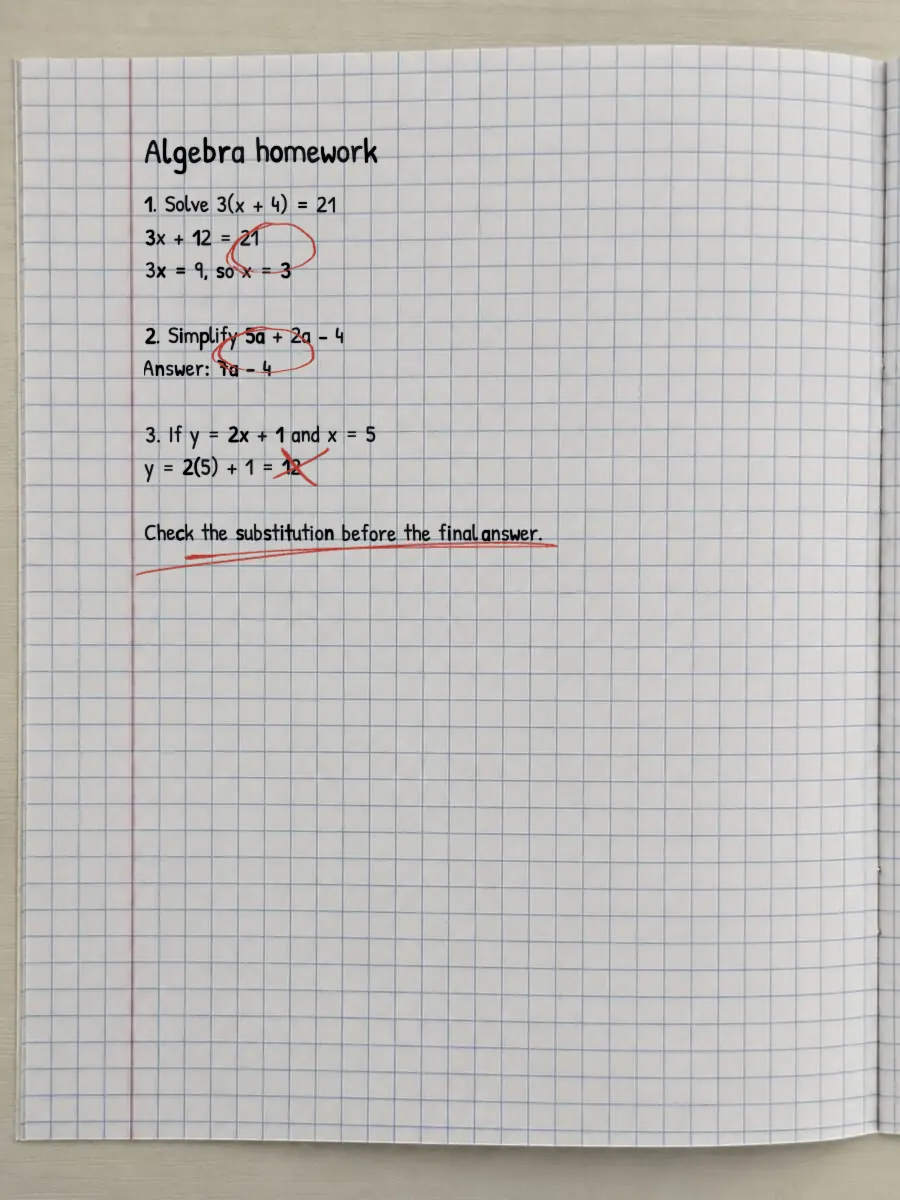 Algebra homework
1. Solve 3(x + 4) = 21
3x + 12 = 21
3x = 9, so x = 3
2. Simplify 5a + 2a - 4
Answer: 7a - 4
3. If y = 2x + 1 and x = 5
y = 2(5) + 1 = 12
Check the substitution before the final answer.